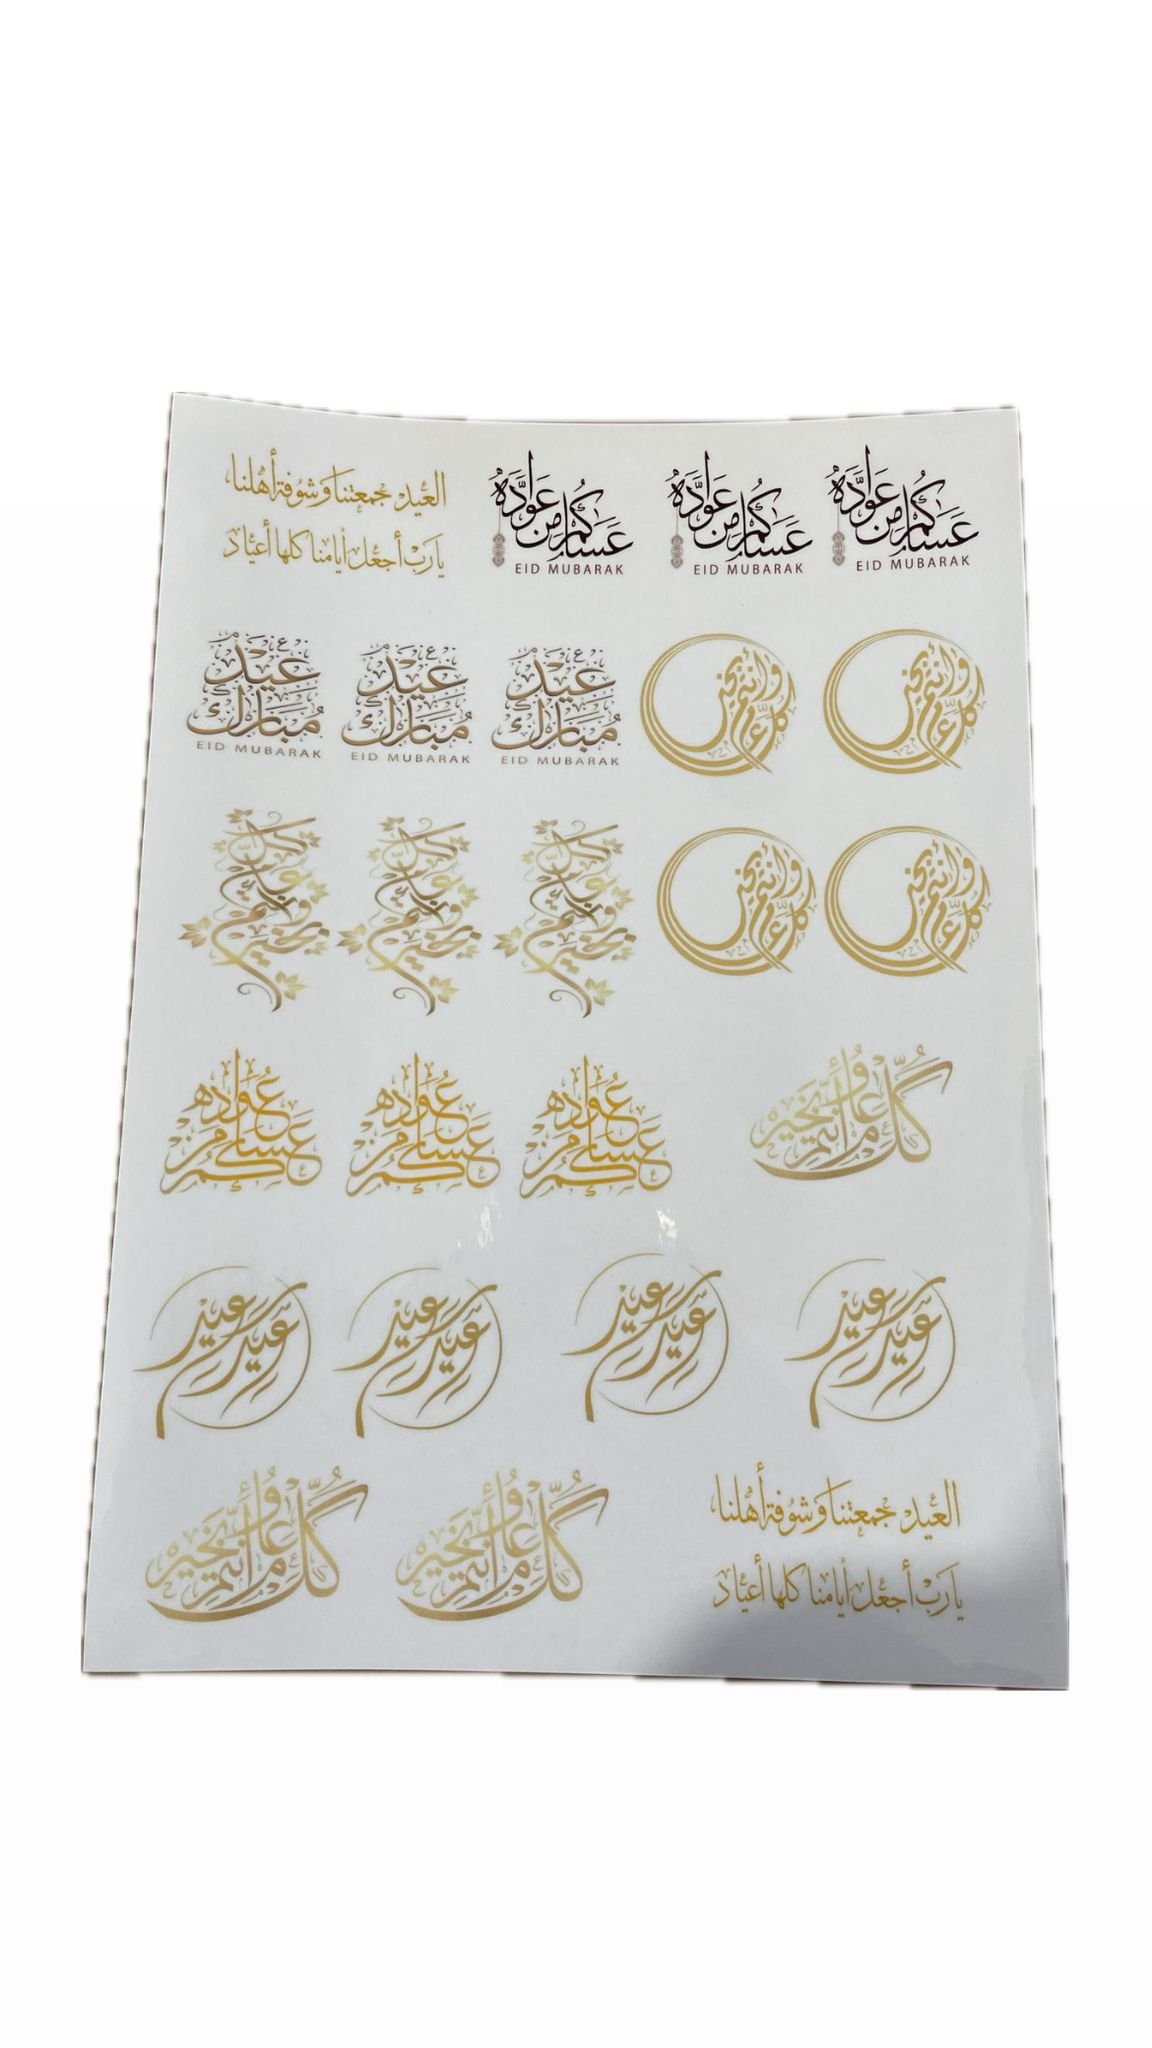 العيد جمعتنا وشوفة أهلنا
يارب أجعل أيامنا كلها أعياد
عساكم من عواده
EID MUBARAK
عساكم من عواده
EID MUBARAK
عساكم من عواده
EID MUBARAK
عيد مبارك
EID MUBARAK
عيد مبارك
EID MUBARAK
عيد مبارك
EID MUBARAK
كل عام وأنتم بخير
كل عام وأنتم بخير
كل عام وأنتم بخير
كل عام وأنتم بخير
كل عام وأنتم بخير
كل عام وأنتم بخير
كل عام وأنتم بخير
عساكم من عواده
عساكم من عواده
عساكم من عواده
كُلّ عام وأنتم بخير
عيد سعيد
عيد سعيد
عيد سعيد
عيد سعيد
كُلّ عام وأنتم بخير
كُلّ عام وأنتم بخير
العيد جمعتنا وشوفة أهلنا
يارب أجعل أيامنا كلها أعياد